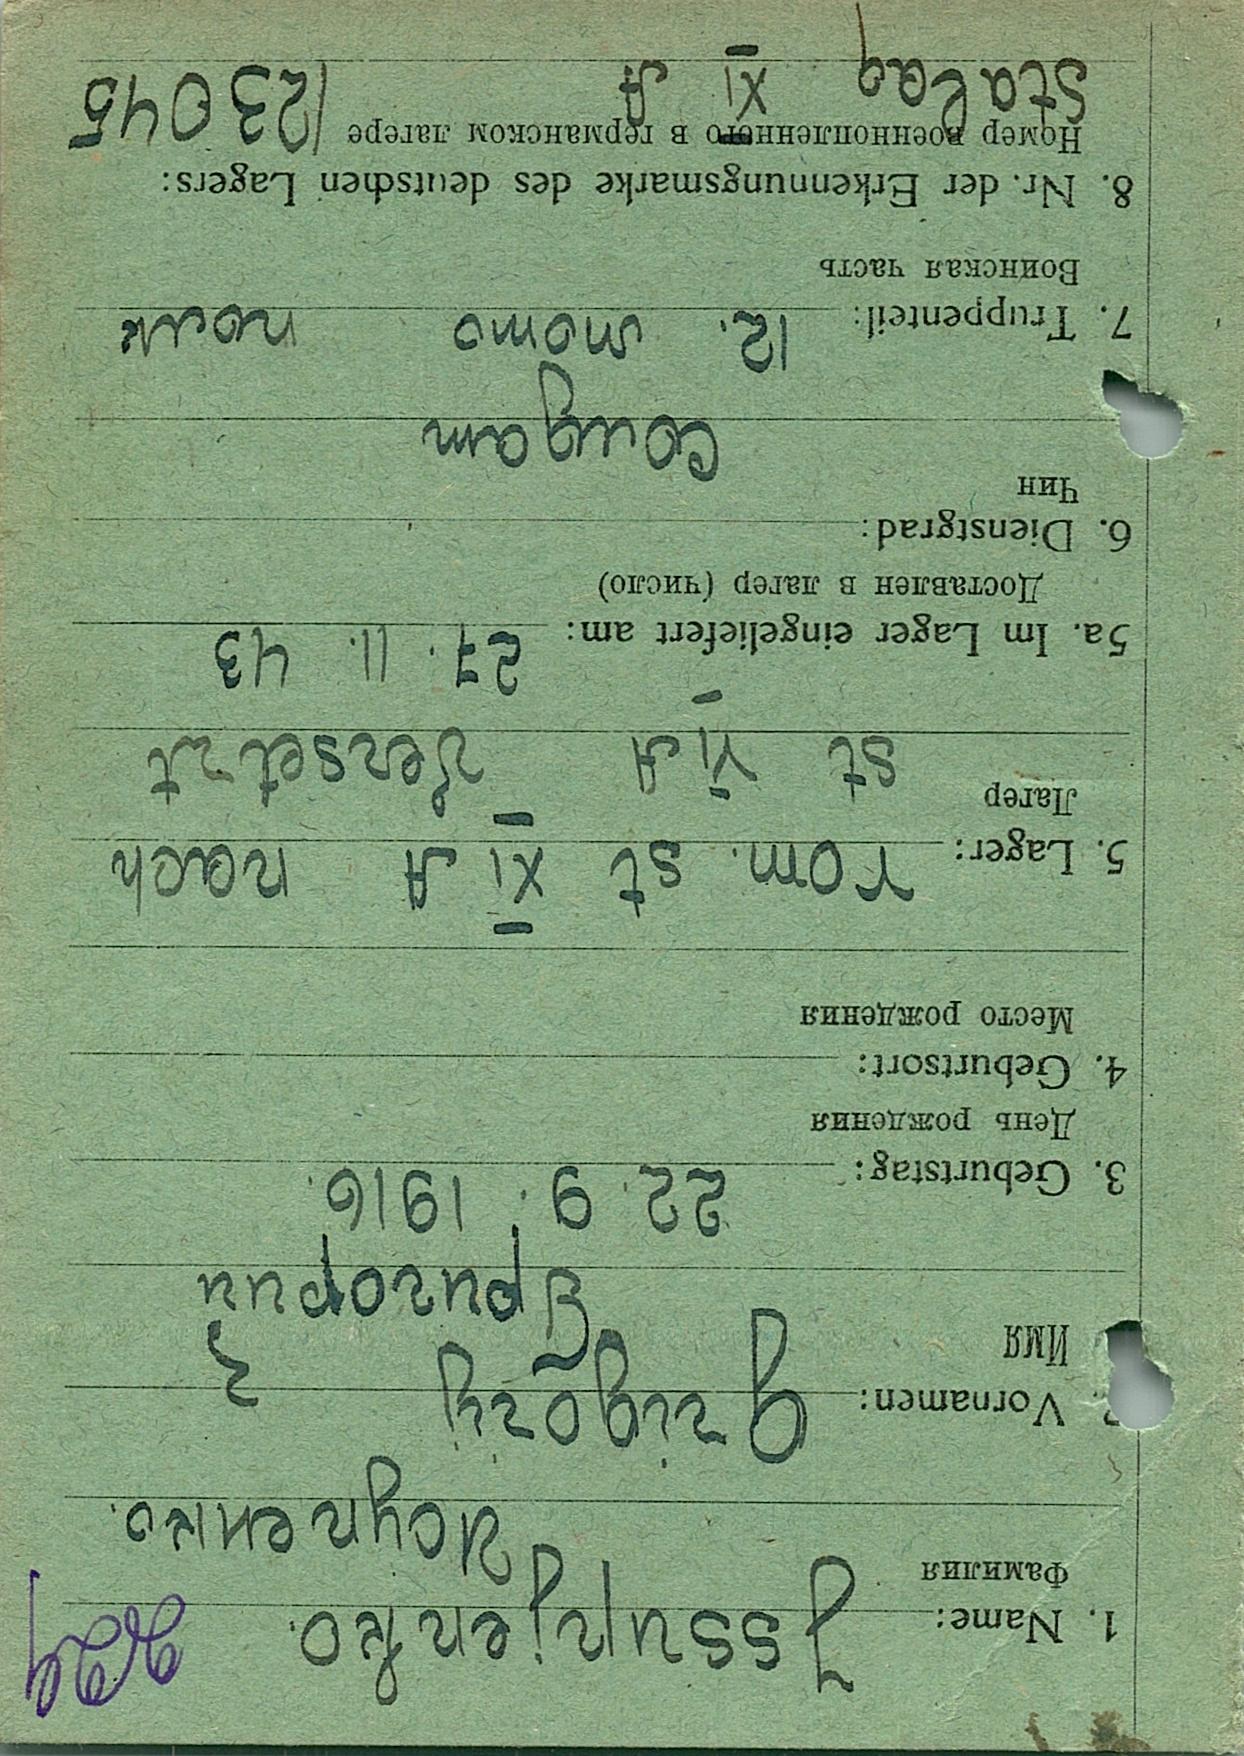 1. Name: Jssupijenko. 224
Фамилия Исупенко.
Vornamen: Grigorij
Имя Григорий
3. Geburtstag: 22. 9. 1916.
День рождения
4. Geburtsort:
Место рождения
5. Lager: vom. St XI A nach
Лагер St VI A versetzt
5a. Im Lager eingeliefert am: 27. 11. 43
Доставлен в лагер (число)
6. Dienstgrad:
Чин Солдат
7. Truppenteil: 12. мото полк
Воинская часть
8. Nr. der Erkennungsmarke des deutschen Lagers:
Номер военнопленного в германском лагере 123045
Stalag XI A